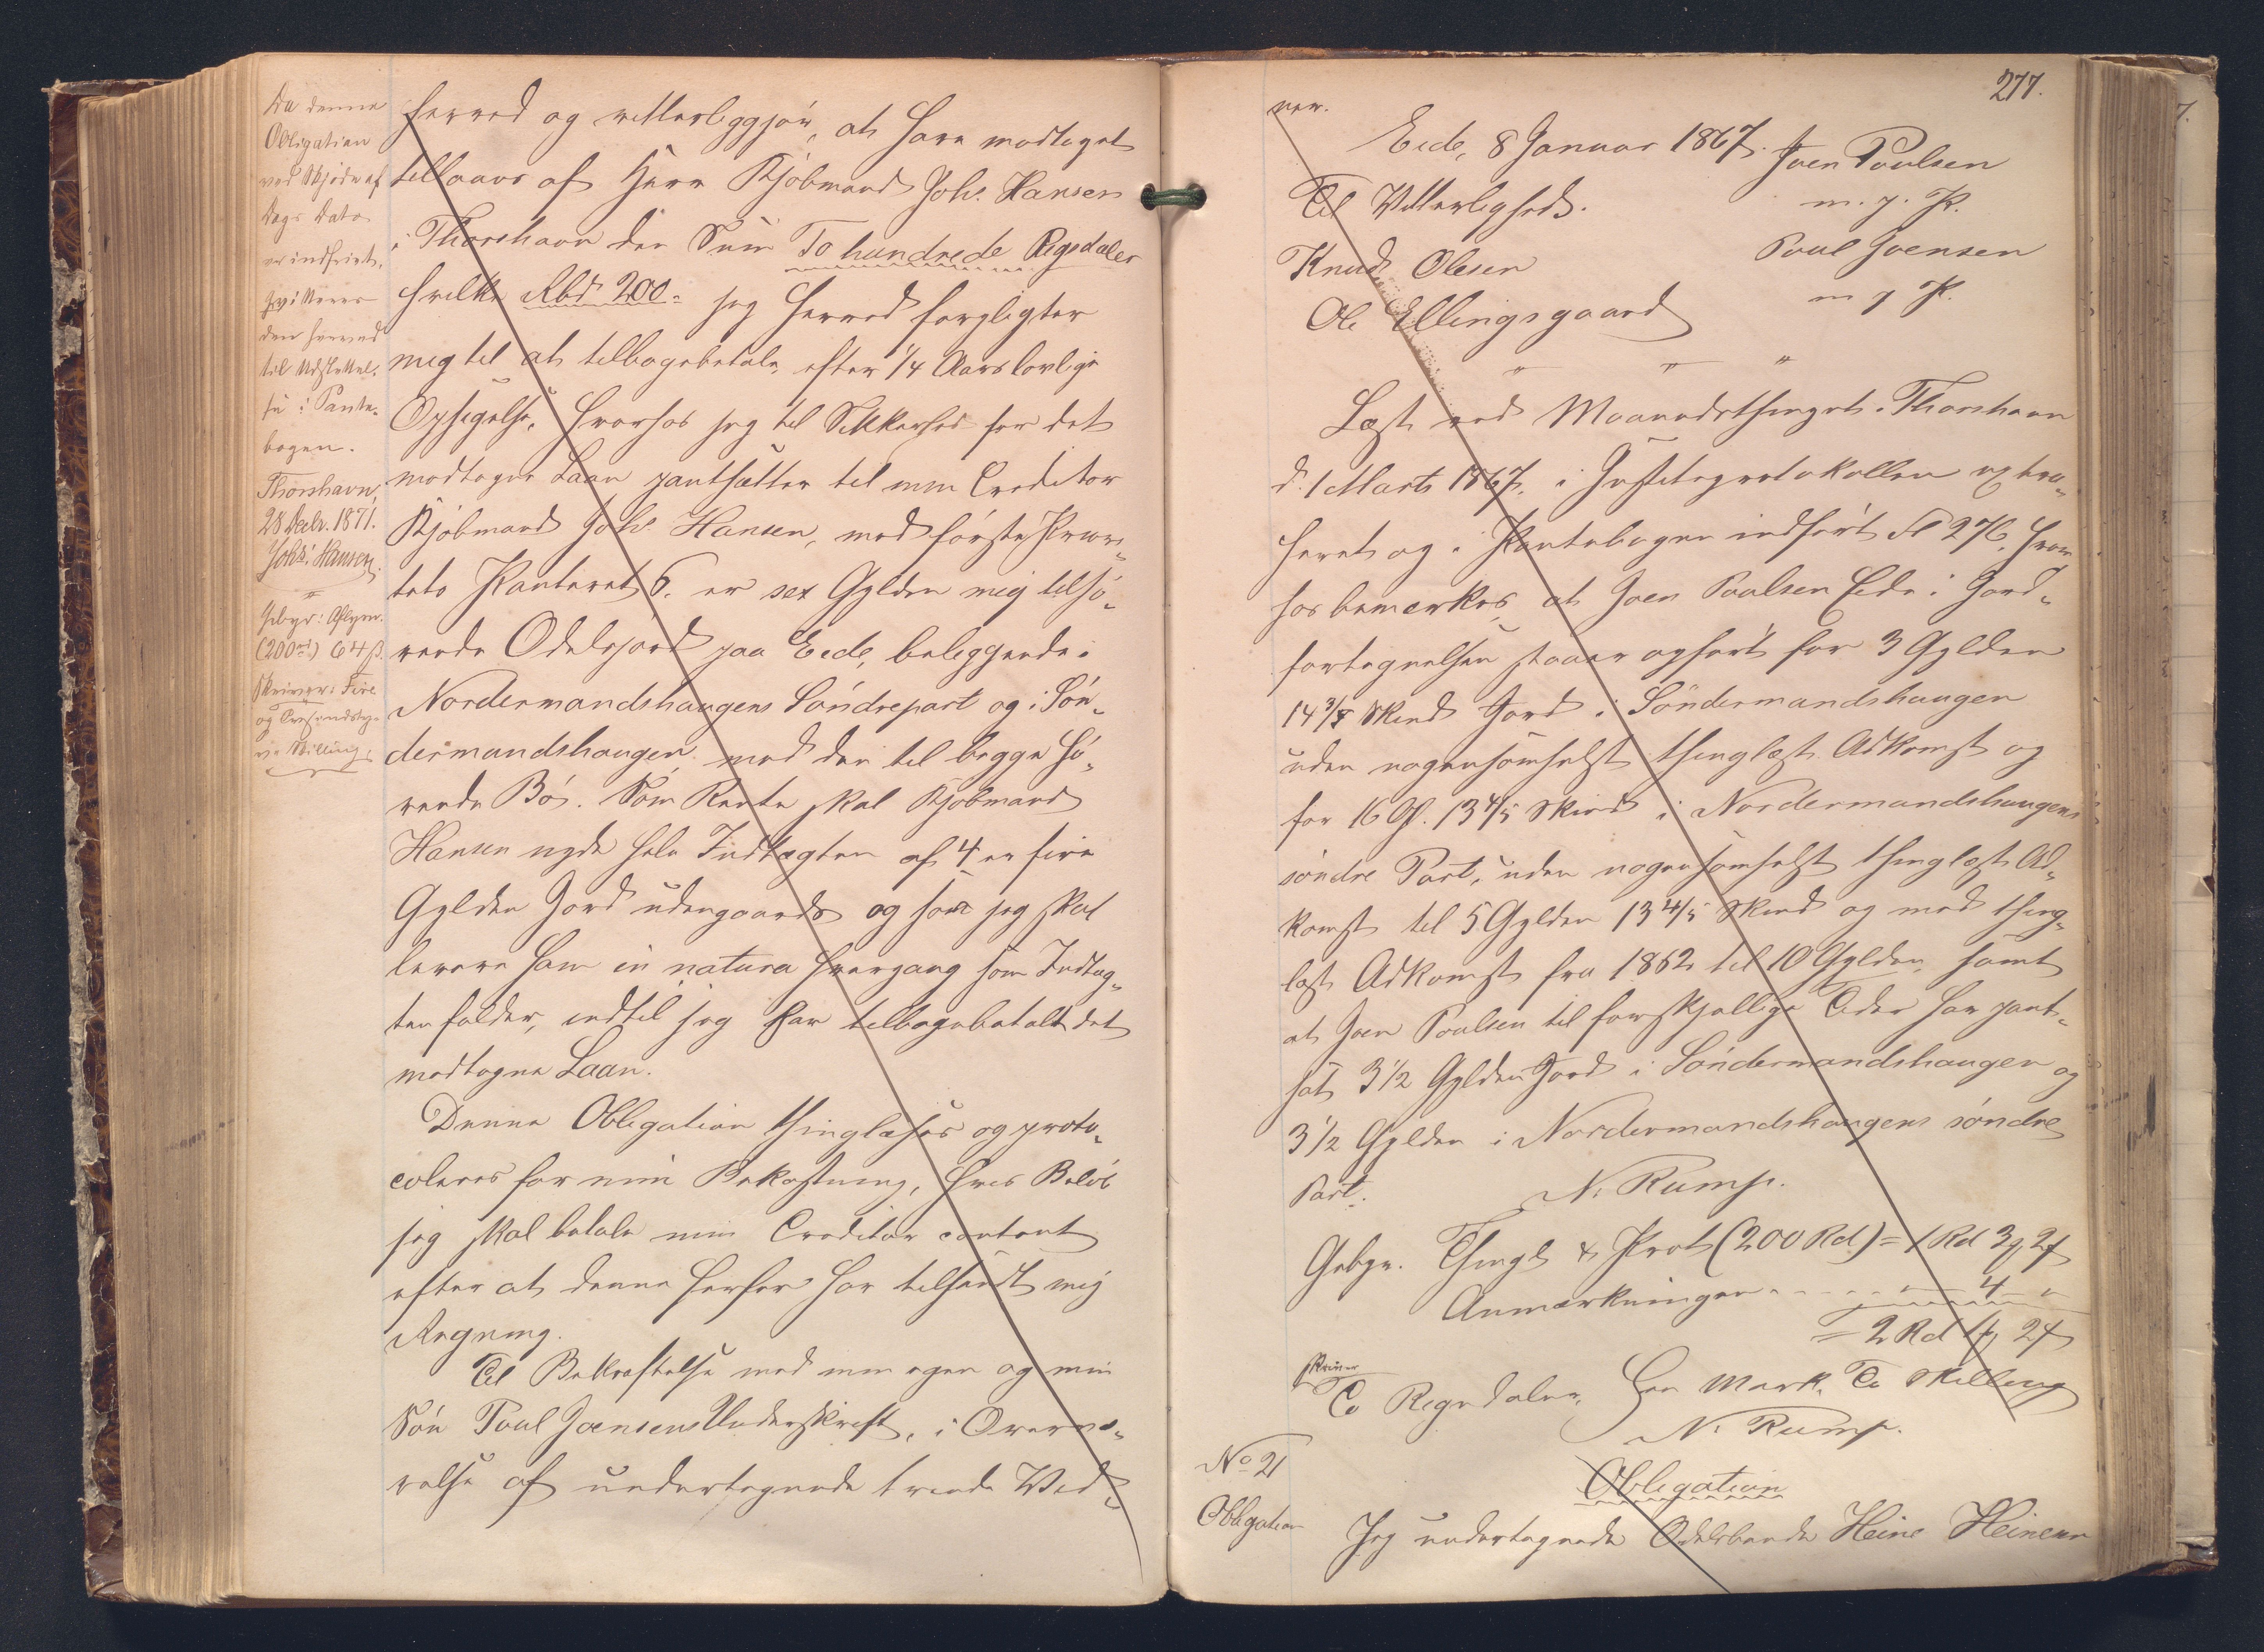 Da denne
Obligation
ved Skjøde af
Dags Dato
er indfriet,
qvitteres
den herved
til Udslettel-
se i Pante-
bogen.
Thorshavn,
28 Decbr. 1871.
Johs. Hansen.
"
Gebyr: Aflysn.
(200 rd) 64 ß.
Skriver: Fire
og Tresindsty-
ve Skilling
herved og vitterliggjør, at have modtaget
tillaans af Herr Kjøbmand Johs. Hansen
i Thorshavn den Sum To hundrede Rigsdaler
hvilke Rbd 200 = jeg herved forpligter
mig til at tilbagebetale efter 1/4 Aars lovlige
Opsigelse, hvorhos jeg til Sikkerhed for det
modtagne Laan pantsætter til min Creditor
Kjøbmand Johs. Hansen, med første Priori-
tets Panteret 6. er sex Gylden mig tilhø-
rende Odelsjord paa Eide, beliggende i
Nordermandshaugens Søndrepart og i Søn-
dermandshaugen med den til begge hø-
rende Bø. Som Rente skal Kjøbmand
Hansen nyde hele Indtægten af 4 er fire
Gylden Jord udengaards og som jeg skal
levere ham in natura hvergang som Indtæg-
ten falder, indtil jeg har tilbagebetalt det
modtagne Laan.
Denne Obligation thinglæses og proto-
coleres for min Bekostning, hvis Beløb
jeg skal betale min Creditor contant
efter at denne herfor har tilsendt mig
Regning.
Til Bekræftelse med min egen og min
Søn Poul Joensens Underskrift, i Overvæ-
relse af undertegnede tvende Vid-
277.
ner.
Eide, 8 Januar 1867. Joen Poulsen
Til Vitterlighed. m. p. P.
Knud Olesen Poul Joensen
Ole Ellingsgaard m p P.
" " "
Læst ved Maanedsthinget i Thorshavn
d. 1 Marts 1867. i Justitsprotokollen extra-
heret og i Pantebogen indført Fl 276, hvor-
hos bemærkes, at Joen Poulsen Eide i Jord-
fortegnelsen staaer opført for 3 Gylden
14 3/8 Skind Jord i Söndermandshaugen
uden nogensomhelst thinglæst Adkomst og
for 16 Gl. 13 4/5 Skind i Nordermandshaugens
søndre Part, uden nogensomhelst thinglæst Ad-
komst til 5 Gylden 13 4/5 Skind og med thing-
læst Adkomst fra 1862 til 10 Gylden, samt
at Joen Poulsen til forskjellige Tider har pant-
sat 3 1/2 Gylden Jord i Söndermandshaugen og
3 1/2 Gylden i Nordermandshaugens søndre
Part.
N. Rump.
Gebyr. Thingl & Prot (200 Rd.) = 1 Rd 3 ꝗ 2 ß
Anmærkningen - - - - " 4 "
= 2 Rd 1 ꝗ 2 ß
skriver
To Rigsdaler, Een Mark, To Skilling
N. Rump.
No 21
Obligation
Obligation
Jeg undertegnede Odelsbonde Heine Heinesen